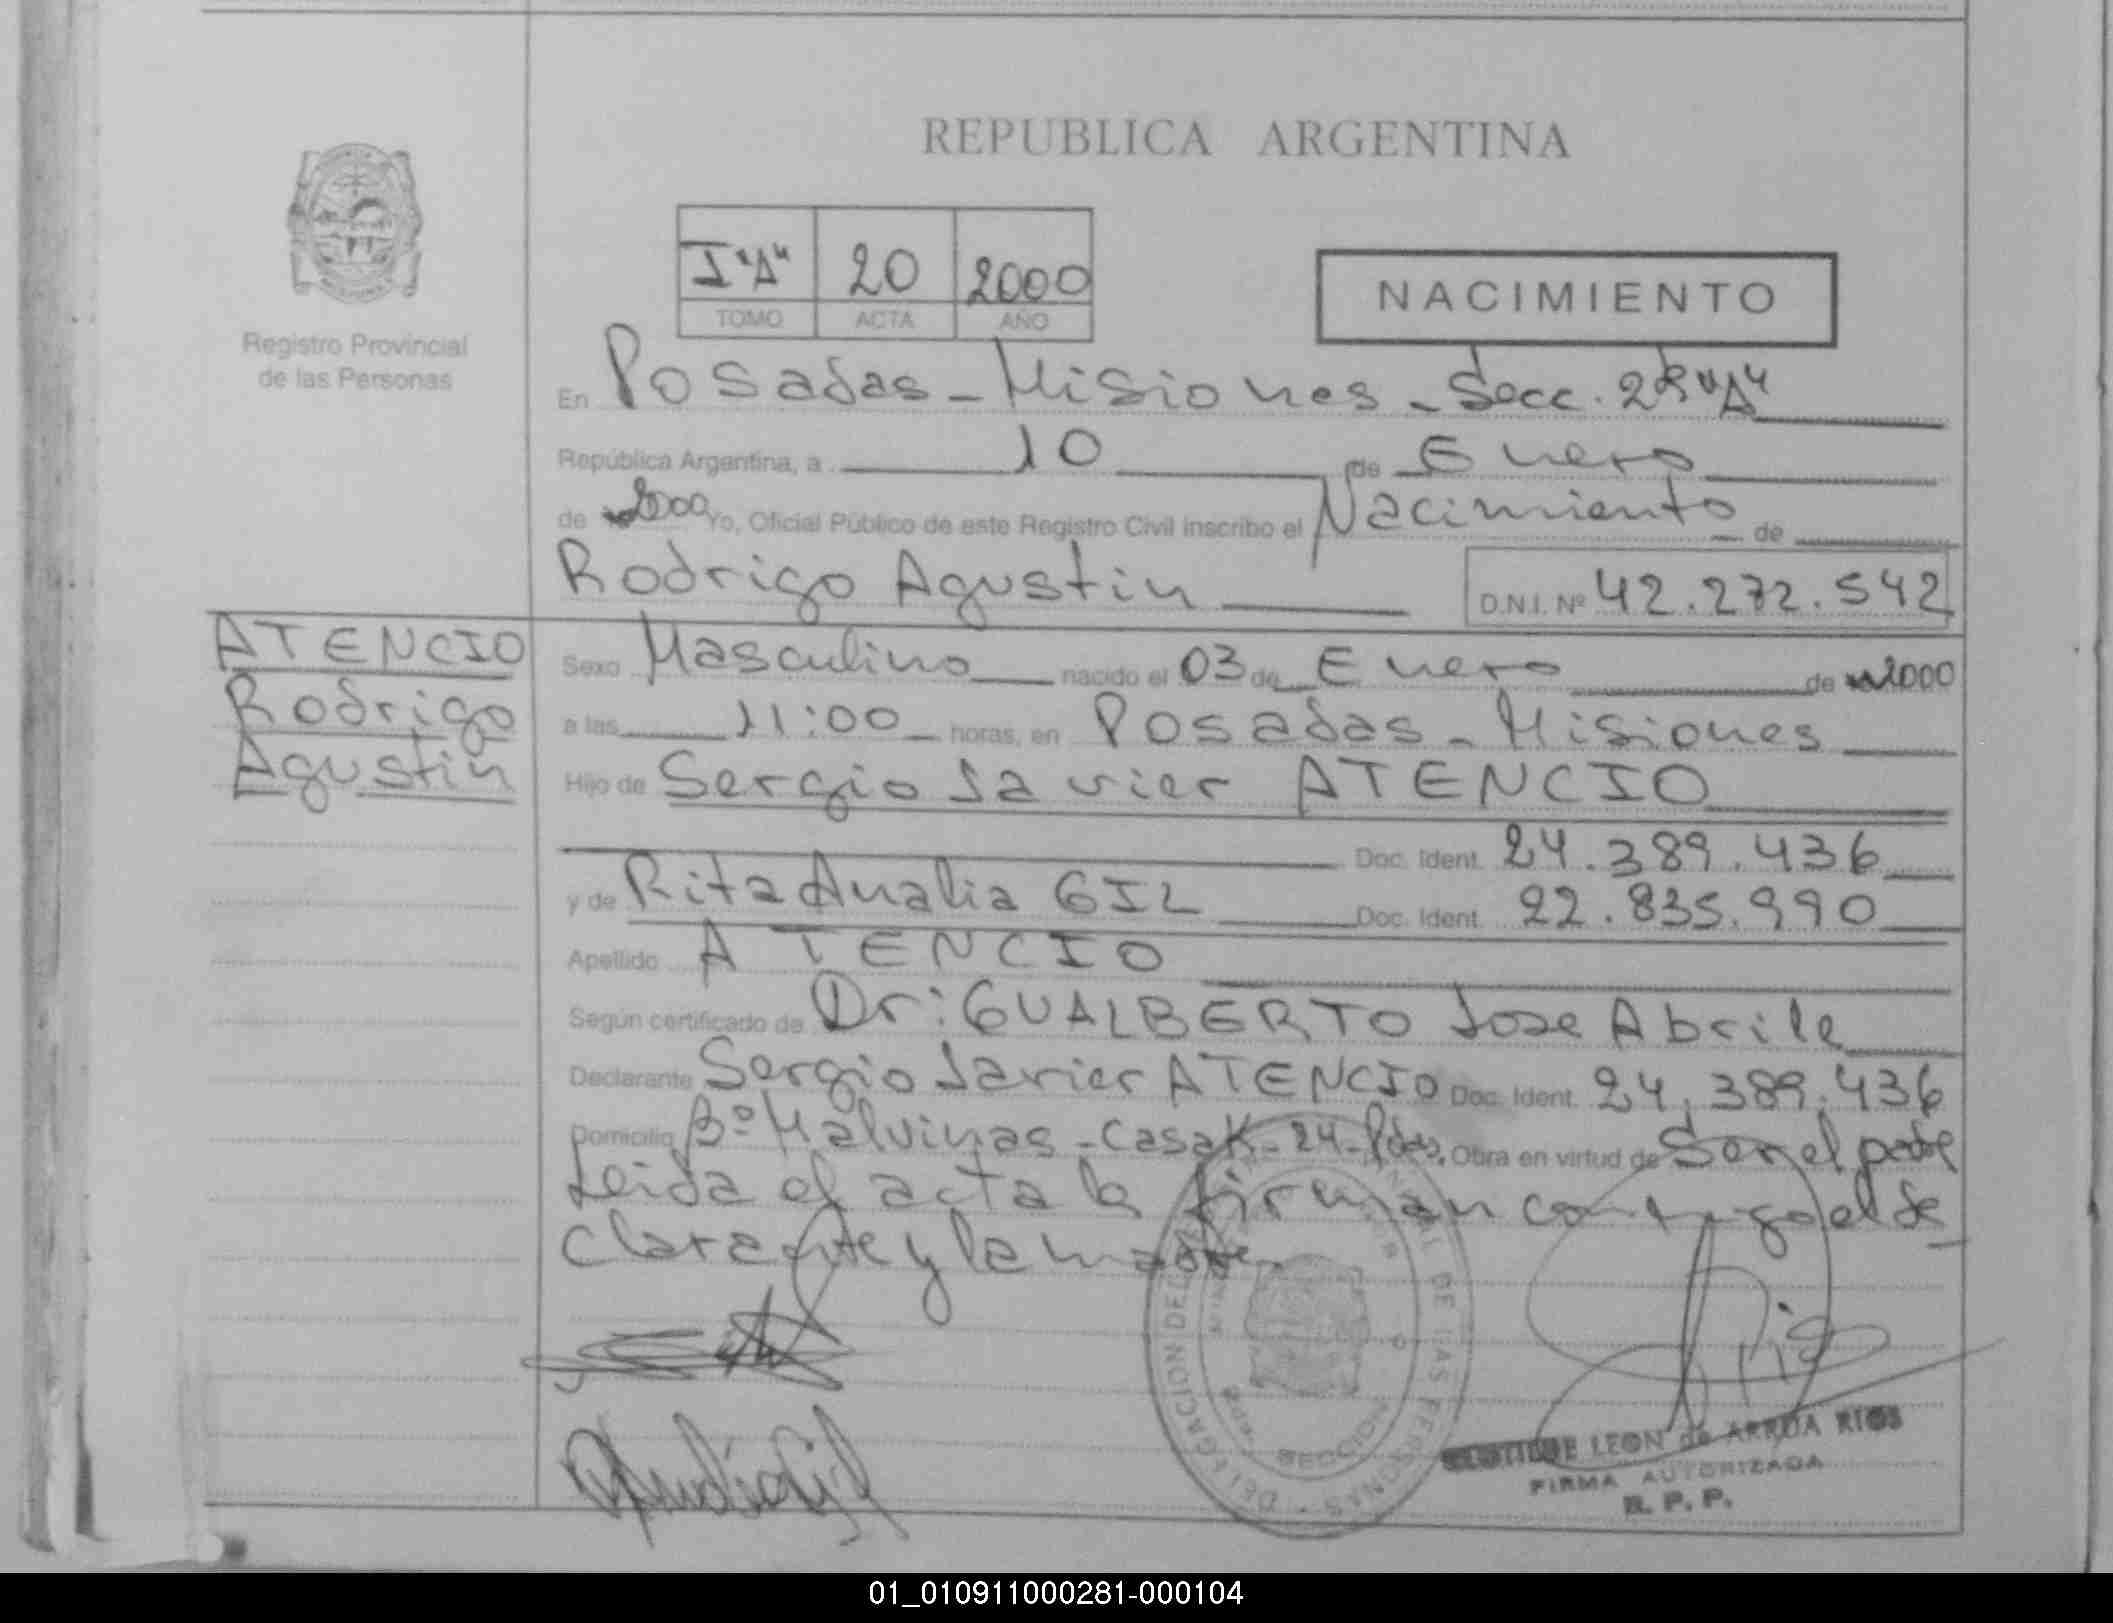 REPUBLICA ARGENTINA
I "A" 20 2000
TOMO ACTA AÑO
NACIMIENTO
Registro Provincial
de las Personas
En Posadas - Misiones - Secc. 2ª "A"
República Argentina, a 10 de Enero
de 2000 Yo, Oficial Público de este Registro Civil inscribo el Nacimiento de
Rodrigo Agustin D.N.I. Nº 42.272.542
ATENCIO
Rodrigo
Agustin
Sexo Masculino nacido el 03 de Enero de 2000
a las 11:00 horas, en Posadas - Misiones
Hijo de Sergio Javier ATENCIO
Doc. Ident. 24.389.436
y de Rita Analia GIL Doc. Ident. 22.835.990
Apellido ATENCIO
Según certificado de Dr: GUALBERTO Jose Abrile
Declarante Sergio Javier ATENCIO Doc. Ident. 24.389.436
Domicilio Bº Malvinas - Casa K - 24 - Pdas. Obra en virtud de Ser el padre
Leida el acta la firman conmigo el de
clarante y la madre.
DELEGACION DEL DE LAS PERSONAS
SECCION
LEON de ARRUA RIOS
FIRMA AUTORIZADA
R. P. P.
01_010911000281-000104